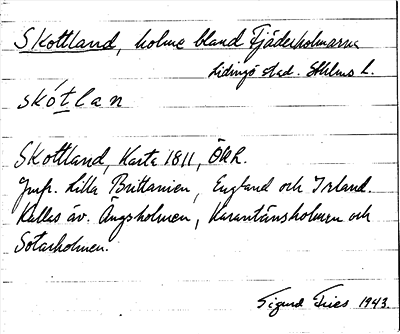 Skottland, holme bland Fjäderholmarna
Lidingö stad. Sthlms l.
skótlan
Skottland, Karta 1811, ÖKA.
Jmf. Lilla Brittanien, England och Irland.
Kallas äv. Ängsholmen, Karantänsholmen och
Sotarholmen.
Sigurd Fries 1943.